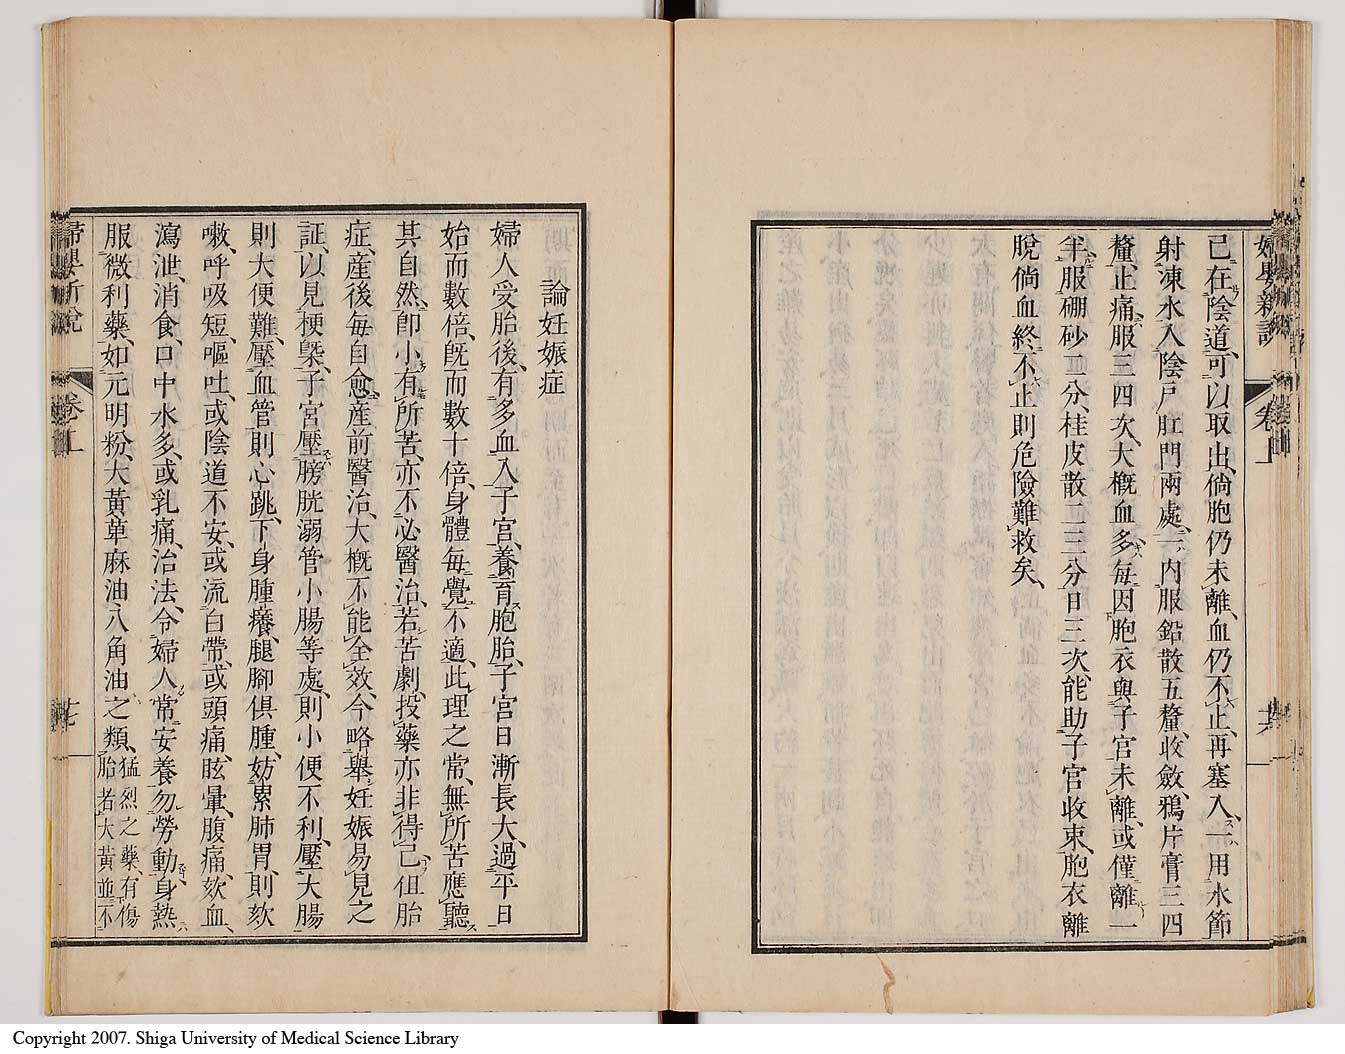 婦嬰新説
卷上
已在陰道、可以取出、倘胞仍未離、血仍不止、再塞入、一用水節
射凍水入陰戶肛門兩處、一內服鉛散五釐、收斂鴉片膏三四
釐、止痛服三四次、大概血多、每因胞衣與子宮未離、或僅離一
半、服硼砂二分、桂皮散二三分、日三次、能助子宮收束、胞衣離
脫、倘血終不止、則危險難救矣、
論妊娠症
婦人受胎後、有多血入子宮、養育胞胎、子宮日漸長大、過平日
始而數倍、旣而數十倍、身體每覺不適、此理之常、無所苦、應聽
其自然、卽小有所苦、亦不必醫治、若苦劇、投藥亦非得已、但胎
症、產後每自愈、產前醫治、大概不能全效、今略舉妊娠易見之
証、以見梗槩、子宮壓膀胱溺管小腸等處、則小便不利、壓大腸
則大便難、壓血管則心跳、下身腫癢、腿腳俱腫、妨累肺胃、則欬
嗽、呼吸短、嘔吐、或陰道不安、或流白帶、或頭痛、眩暈、腹痛、欬血、
瀉泄、消食、口中水多、或乳痛、治法、令婦人常安養、勿勞動、身熱
服微利藥、如元明粉、大黃萆麻油八角油之類、猛烈之藥、有傷
胎者、大黃並不
婦嬰新說
卷上